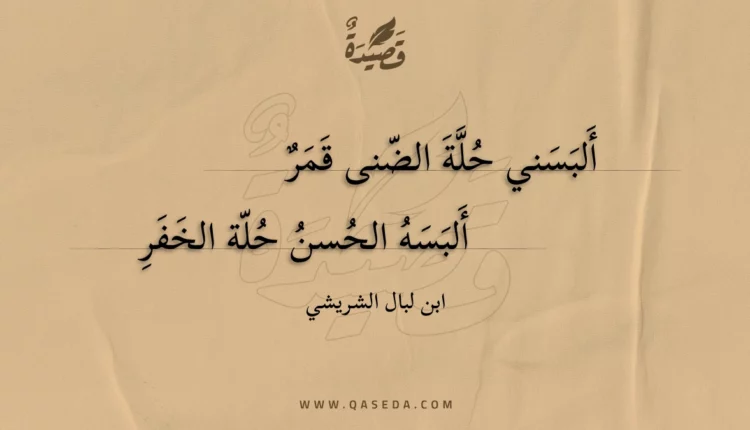 قَصِيدَةٌ
أَلبَسَني حُلَّةَ الضّنى قَمَرٌ
أَلبَسَهُ الحُسنُ حُلّة الخَفَرِ
ابن لبال الشريشي
WWW.QASEDA.COM